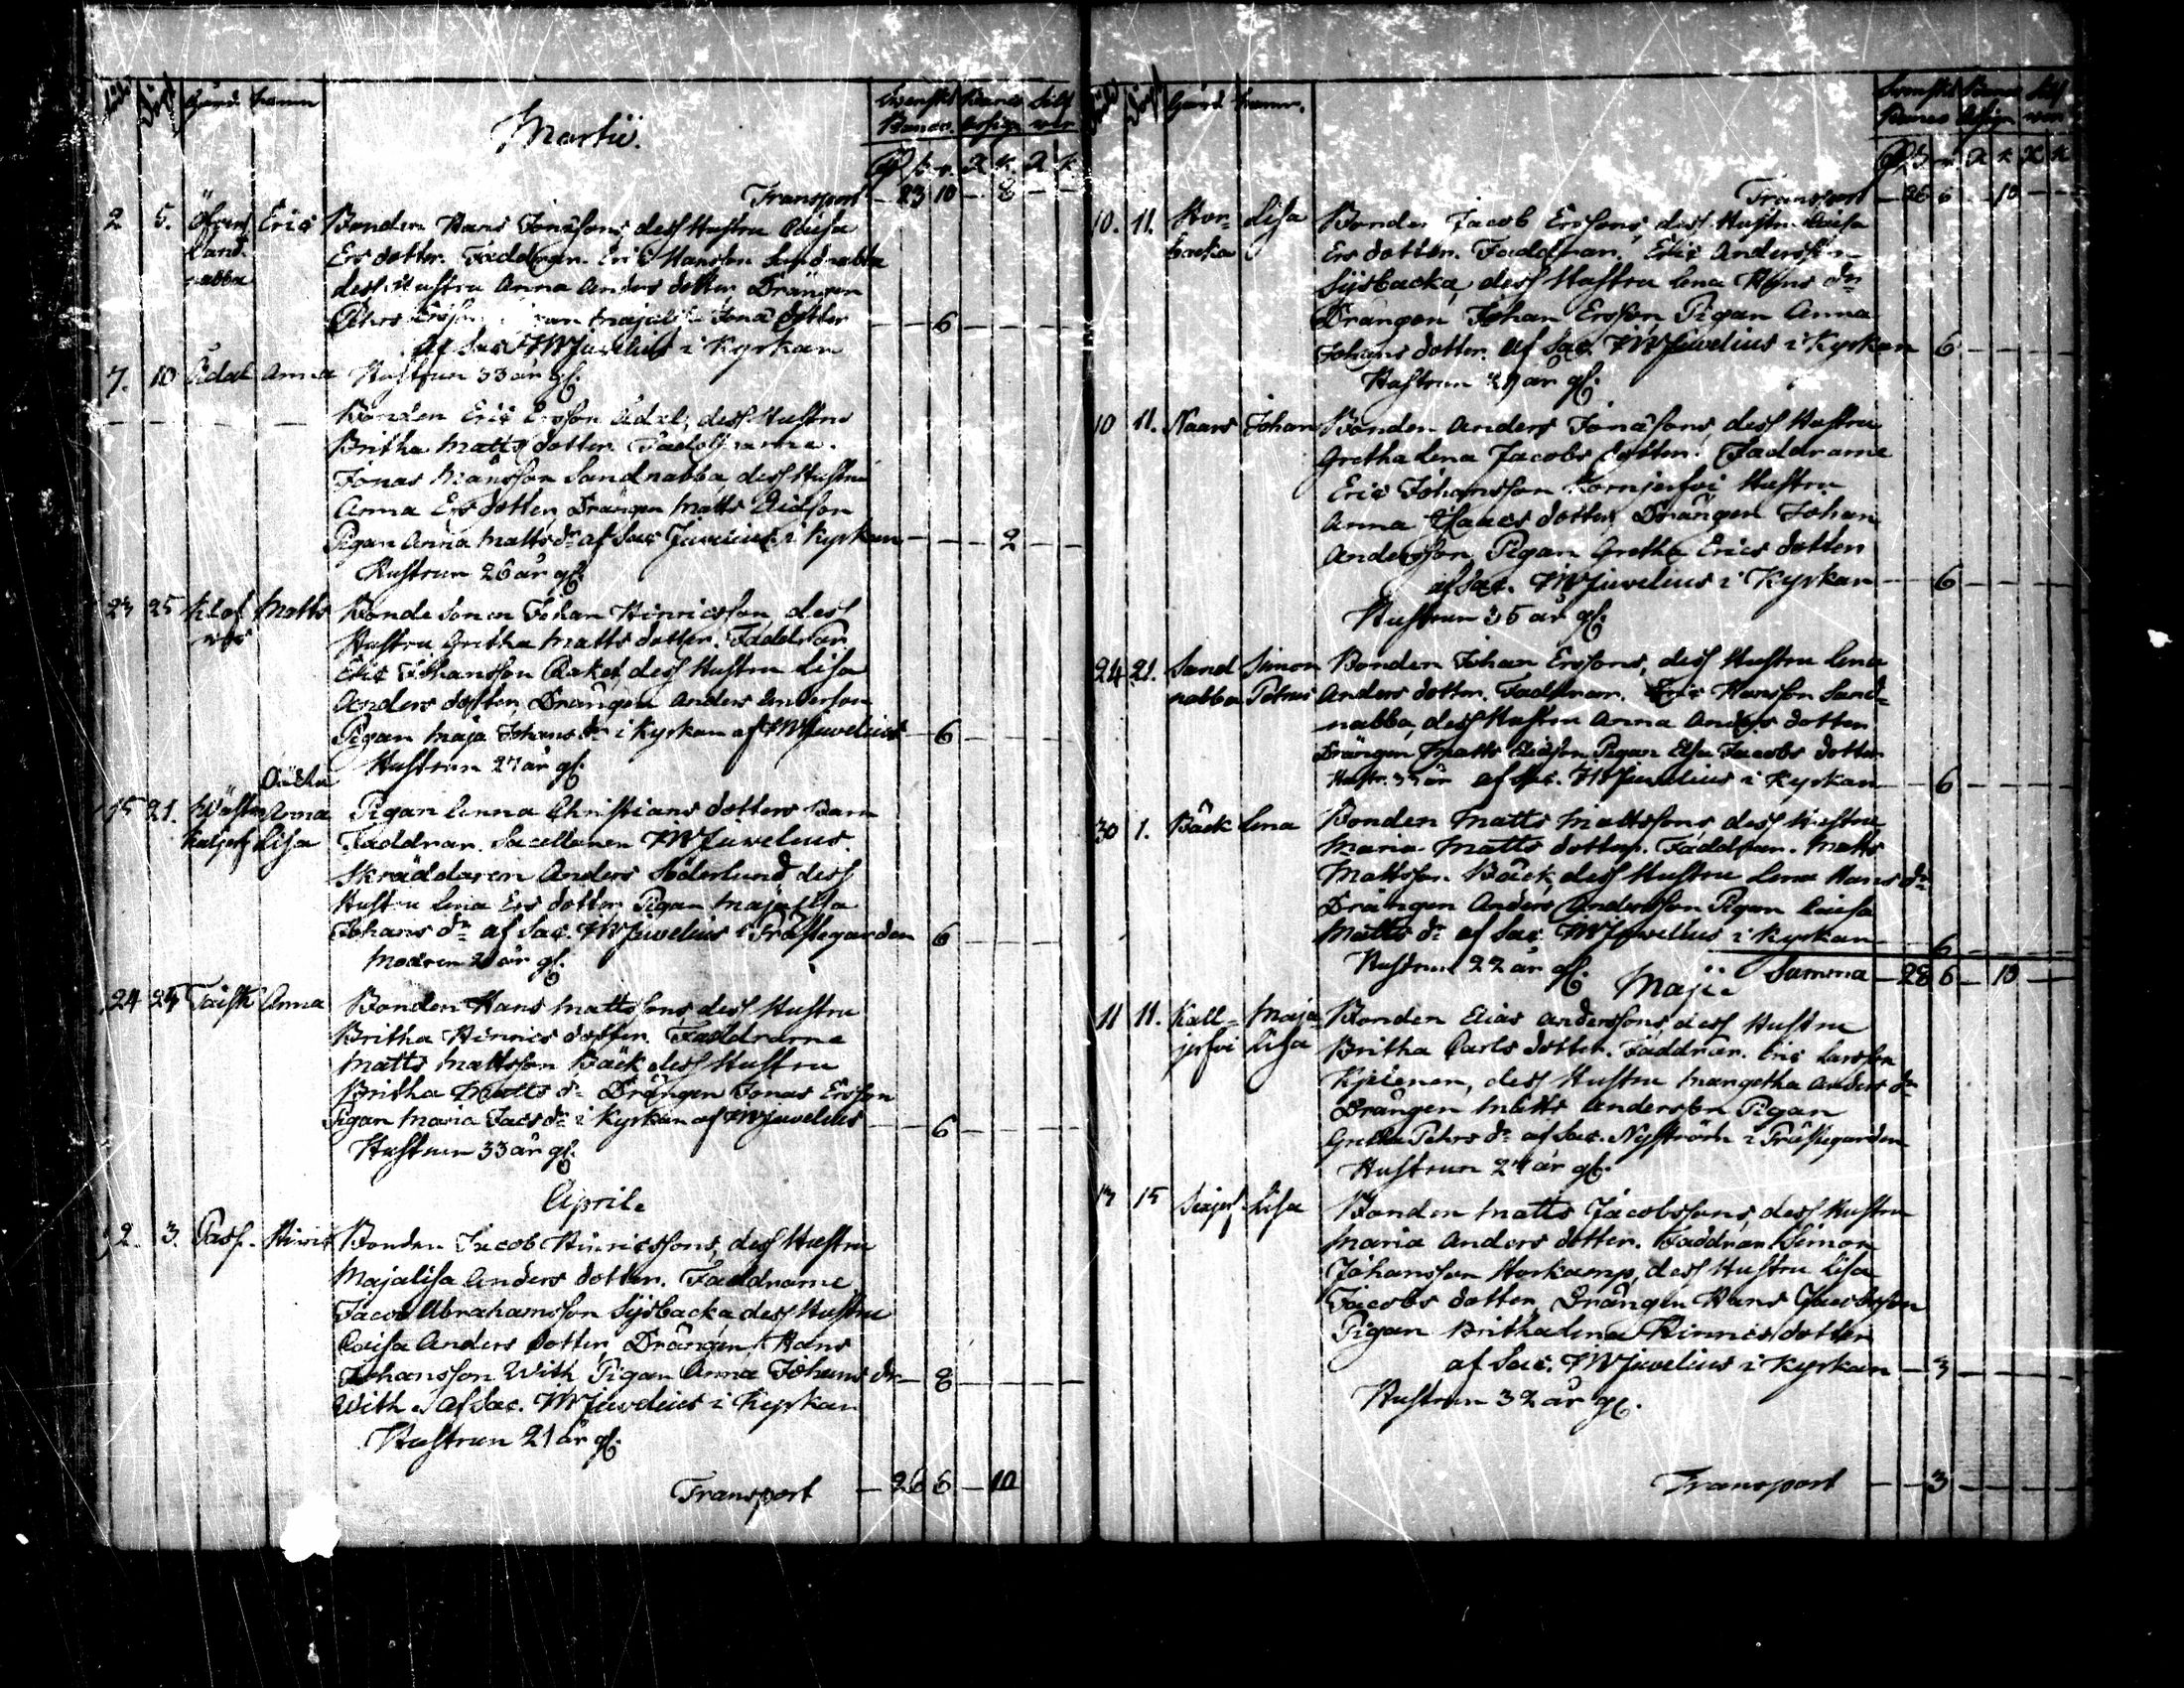 Gård Namn
Martii.
Svenskt Banco Banco Assign Silfwer
Transport 23 10 8
2 5. Öfvre Sandnabba Eric Bonden Hans Jonæsons dess Hustru Caisa
Ersdotter. Faddrar. Eric Hansson Sandnabba
dess Hustru Anna Anders dotter, Drängen
Pehrs Majalisa Jonædotter 6
af Sac. JW Juvelius i Kyrkan
7. 10 Ådal Anna Hustrun 33 år gl.
Bonden Eric Ersson Ådal, dess Hustru
Britha Matts dotter.
Jonas Månsson Sandnabba, dess Hustru
Anna Ersdotter, Drängen Matts
Pigan Anna Mattsdr af Sac Juvelius i Kyrkan 2
Hustrun 26 år gl.
23 25 Matts Bonde sonen Johan Hinricsson, dess
Hustru Gretha Matts dotter. Faddrar
Eric Johansson dess Hustru Lisa
Anders dotter, Drängen Anders Andersson
Pigan Maja Johansdr i Kyrkan af JW Juvelius 6
Hustrun 27 år gl.
21. Anna Lisa Pigan Anna Christians dotters Barn
Faddrar. Sacellanen JW Juvelius.
Skräddaren Anders Söderlund dess
Hustru Lena Ers dotter Pigan Majalisa
Johans dr af Sac. JW Juvelius i Prästegården 6
Modren 20 år gl.
24 25 Taisk Anna Bonden Hans Mattssons dess Hustru
Britha Hinrics dotter. Faddrarne
Matts Mattsson Bäck dess Hustru
Britha Matts dr Drängen Jonas Ersson
Pigan Maria Jacsdr i Kyrkan af JW Juvelius 6
Hustrun 33 år gl.
Aprile
2. 3. Pass. Hinric Bonden Jacob Hinricssons, dess Hustru
Majalisa Anders dotter. Faddrarne
Jacob Abrahamsson Sijsbacka dess Hustru
Caisa Anders dotter, Drängen Hans
Johansson With Pigan Anna Johans dr 8
With af Sac. JW Juvelius i Kyrkan
Hustrun 21 år gl.
Transport 26 6 10
Gård Namn.
Svenskt Banco Banco Assign Silfwer
Transport 26 6 10
10. 11. Storbacka Lisa Bonden Jacob Erssons dess Hustru Caisa
Ers dotter. Faddrar. Eric Andersson
Sijsbacka, dess Hustru Lena Hans dr
Drängen Johan Ersson, Pigan Anna
Johans dotter. af Sac. JW Juvelius i Kyrkan 6
Hustrun 29 år gl.
10 11. Naars Johan Bonden Anders Jonæsons, dess Hustru
Gretha Lena Jacobs dotter. Faddrarne
Eric Johansson Kornjerfvi Hustru
Anna Isaacs dotter, Drängen Johan
Andersson, Pigan Gretha Erics dotter
af Sac. JW Juvelius i Kyrkan 6
Hustrun 35 år gl.
24 21. Sandnabba Simon Petrus Bonden Johan Erssons, dess Hustru Lena
Anders dotter. Faddrar. Eric Hansson Sandnabba,
dess Hustru Anna Anders dotter
Drängen Matts Pigan Elsa Jacobs dotter
Hustr. 33 år af Sac. JW Juvelius i Kyrkan 6
30 1. Bäck Lena Bonden Matts Mattssons dess Hustru
Maria Matts dotter. Faddrar. Matts
Mattsson Bäck, dess Hustru Lena Hans dr
Drängen Anders Andersson Pigan Caisa
Matts dr af Sac. JW Juvelius i Kyrkan 6
Hustrun 22 år gl. Summa 28 6 10
Maji
11 11. Kalljerfvi Maja Lisa Bonden Elias Anderssons, dess Hustru
Britha Carls dotter. Faddrar. Eric Larsson
dess Hustru Margetha Anders dr
Drängen Matts Andersson Pigan
Gretha Pehrs dr af Sac. Nyström i Prästegården
Hustrun 24 år gl.
13 15 Lisa Bonden Matts Jacobssons, dess Hustru
Maria Anders dotter. Faddrar Simon
Johansson Storkamp, dess Hustru Lisa
Jacobs dotter, Drängen Hans Jacobsson
Pigan Brithalena Hinrics dotter
af Sac. JW Juvelius i Kyrkan 3
Hustrun 32 år gl.
Transport 3